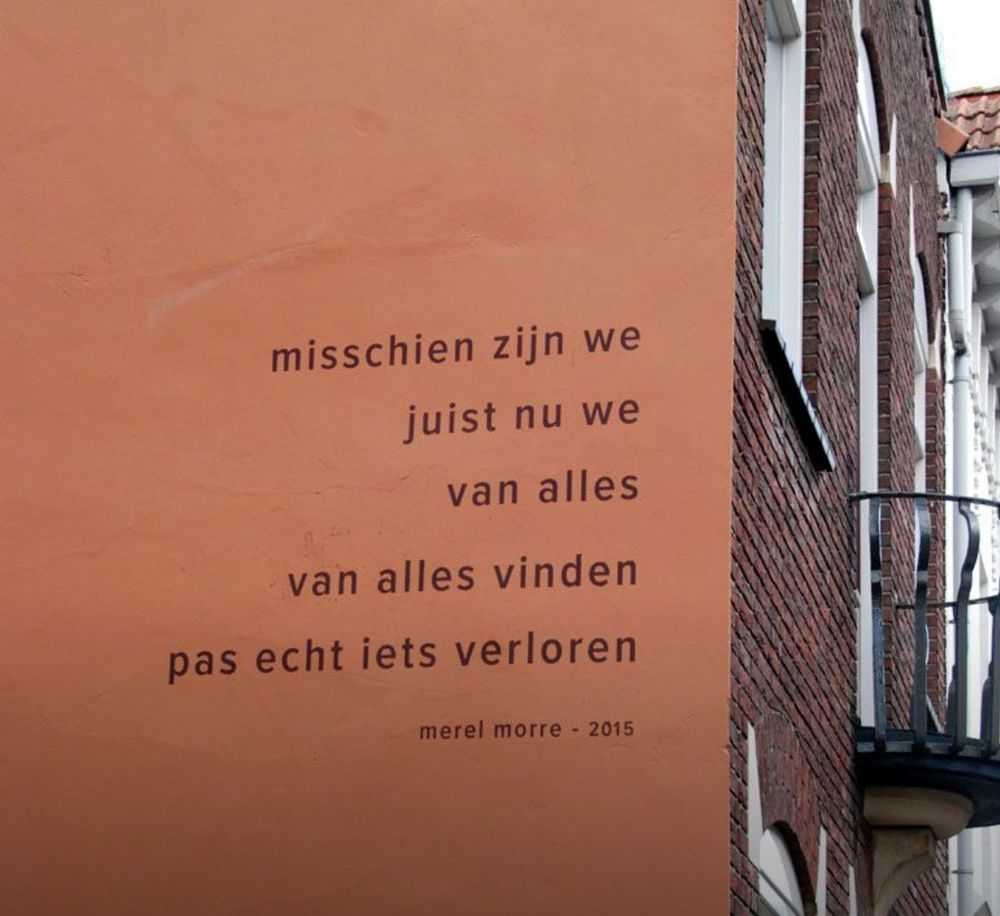 misschien zijn we
juist nu we
van alles
van alles vinden
pas echt iets verloren
merel morre - 2015